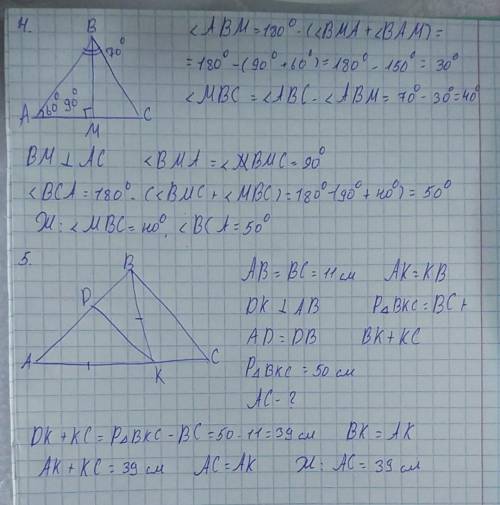 4.
B
70°
A
60°
90°
C
M
∠ABM = 180° - (∠BMA + ∠BAM) =
= 180° - (90° + 60°) = 180° - 150° = 30°
∠MBC = ∠ABC - ∠ABM = 70° - 30° = 40°
BM ⊥ AC ∠BMA = ∠MBMC = 90°
∠BCA = 180° - (∠BMC + ∠MBC) = 180° - (90° + 40°) = 50°
Ж: ∠MBC = 40°, ∠BCA = 50°
5.
B
D
A
K
C
AB = BC = 11 см AK = KB
DK ⊥ AB P△BKC = BC +
AD = DB BK + KC
P△BKC = 50 см
AC - ?
DK + KC = P△BKC - BC = 50 - 11 = 39 см BK = AK
AK + KC = 39 см AC = AK Ж: AC = 39 см